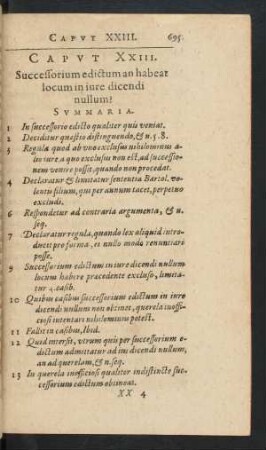 CAPVT XXIII. 695
CAPVT XXIII.
Successorium edictum an habeat
locum in iure dicendi
nullum?
SVMMARIA.
1 In successorio edicto qualiter quis veniat.
2 Deciditur quæstio distinguendo, & n. 5. 8.
3 Regula quod ab vno exclusus nihilominus a-
lio iure, a quo exclusus non est, ad successio-
nem venire possit, quando non procedat.
4 Declaratur & limitatur sententia Bartol. vo-
lentis filium, qui per annum tacet, perpetuo
excludi.
6 Respondetur ad contraria argumenta, & n.
seq.
7 Declaratur regula, quando lex aliquid intro-
ducit pro forma, ei nullo modo renuntiari
posse.
9 Successorium edictum in iure dicendi nullum
locum habere præcedente excluso, limita-
tur 4. casib.
10 Quibus casibus successorium edictum in iure
dicendi nullum non obtinet, querela inoffi-
ciosi intentari nihilominus potest.
11 Fallit in casibus, Ibid.
12 Quid intersit, vtrum quis per successorium e-
dictum admittatur ad ius dicendi nullum,
an ad querelam, & n. seq.
13 In querela inofficiosi qualiter indistincte suc-
cessorium edictum obtineat.
XX 4